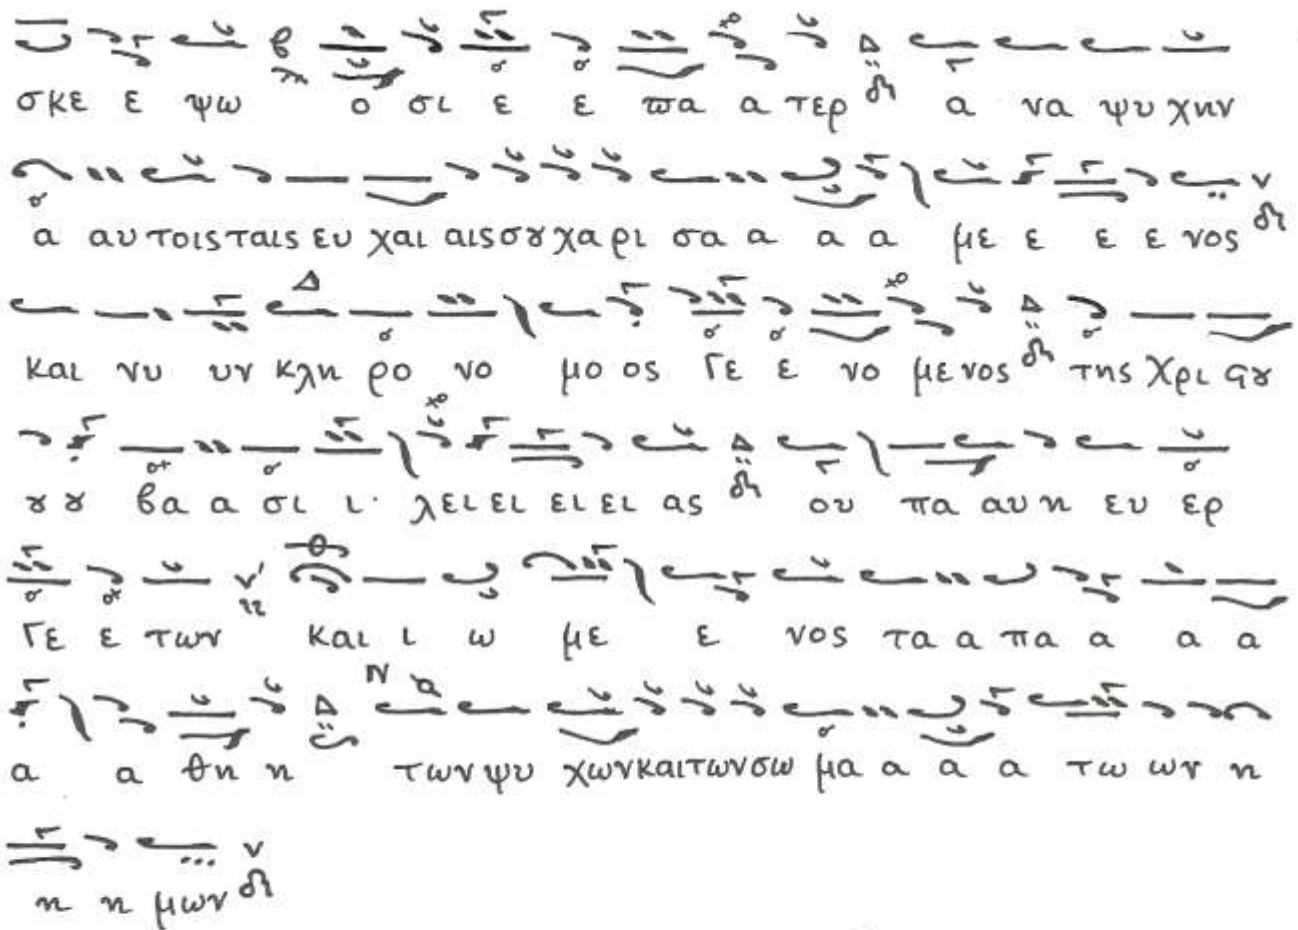 σκε ε ψω ο σι ε ε πα α τερ α να ψυ χην
α αυ τοις ταις ευ χαι αις σου χα ρι σα α α α με ε ε ε νος
και νυ υν κλη ρο νο μο ος Γε ε νο με νος της Χρι στου
ου ου βα α σι ι λει ει ει ει ας ου πα αυ η ευ ερ
Γε ε των και ι ω με ε νος τα α πα α α α
α α θη η των ψυ χων και των σω μα α α α τω ων η
η η μων